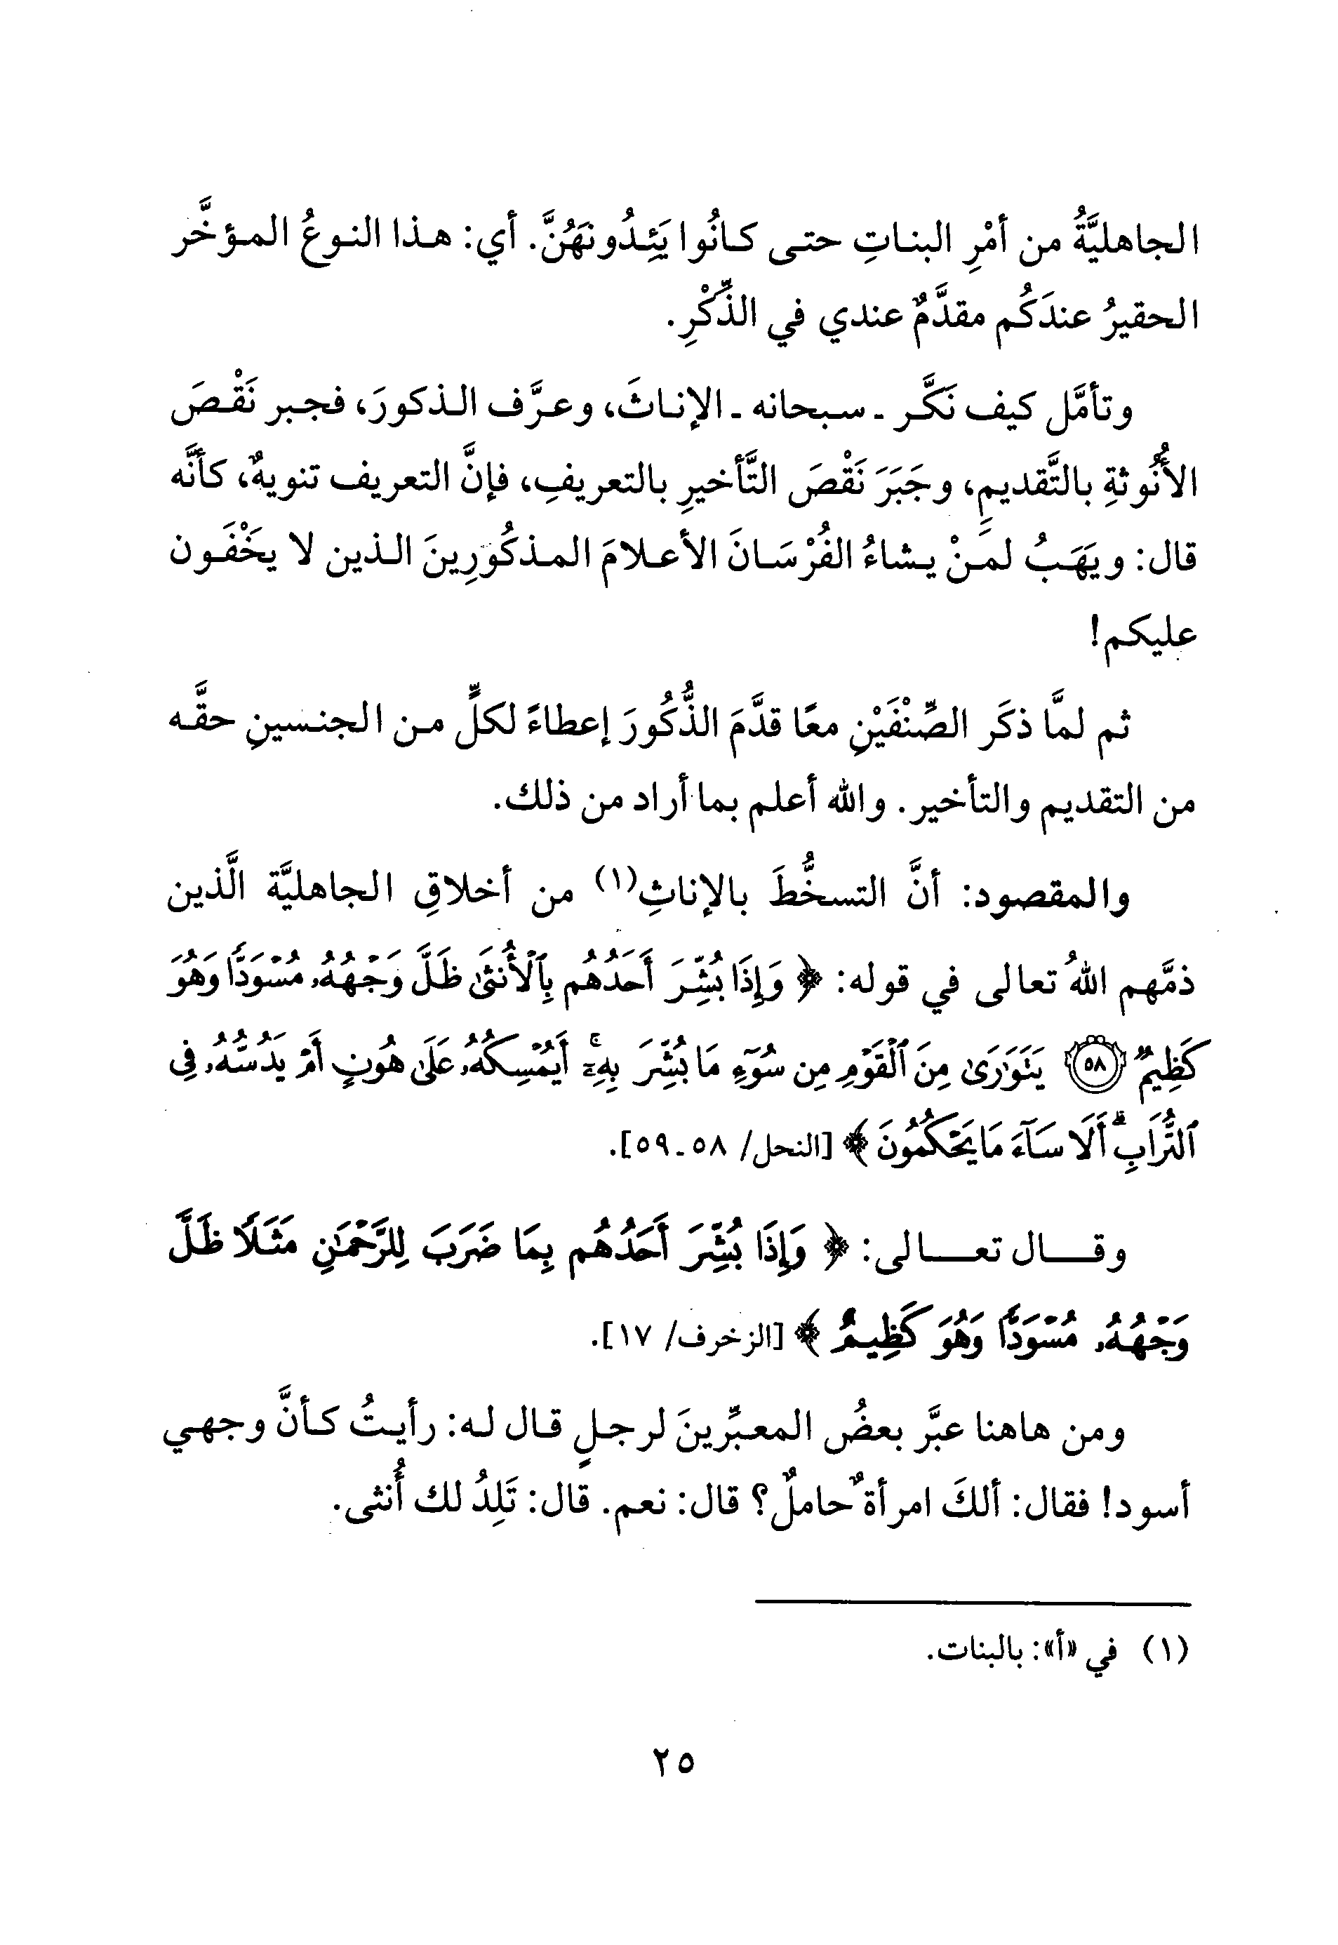 الجاهليَّةُ من أمْرِ البناتِ حتى كانُوا يَئِدُونَهُنَّ. أي: هذا النوعُ المؤخَّر
الحقيرُ عندَكُم مقدَّمٌ عندي في الذِّكْرِ.
وتأمَّل كيف نَكَّر ـ سبحانه ـ الإناثَ، وعرَّف الذكورَ، فجبر نَقْصَ
الأُنُوثةِ بالتَّقديمِ، وجَبَرَ نَقْصَ التَّأخيرِ بالتعريفِ، فإنَّ التعريف تنويهٌ، كأنَّه
قال: ويَهَبُ لمَنْ يشاءُ الفُرْسَانَ الأعلامَ المذكُورِينَ الذين لا يخَْفَون
عليكم!
ثم لمَّا ذكَر الصِّنْفَيْنِ معًا قدَّمَ الذُّكُورَ إعطاءً لكلٍّ من الجنسينِ حقَّه
من التقديم والتأخير. والله أعلم بما أراد من ذلك.
والمقصود: أنَّ التسخُّطَ بالإناثِ(١) من أخلاقِ الجاهليَّة الَّذين
ذمَّهم اللهُ تعالى في قوله: ﴿ وَإِذَا بُشِّرَ أَحَدُهُم بِٱلْأُنثَىٰ ظَلَّ وَجْهُهُۥ مُسْوَدًّا وَهُوَ
كَظِيمٌ ٥٨ يَتَوَٰرَىٰ مِنَ ٱلْقَوْمِ مِن سُوٓءِ مَا بُشِّرَ بِهِۦٓ ۚ أَيُمْسِكُهُۥ عَلَىٰ هُونٍ أَمْ يَدُسُّهُۥ فِى
ٱلتُّرَابِ ۗ أَلَا سَآءَ مَا يَحْكُمُونَ ﴾ [النحل/ ٥٨ـ٥٩].
وقـــال تعـــالى: ﴿ وَإِذَا بُشِّرَ أَحَدُهُم بِمَا ضَرَبَ لِلرَّحْمَٰنِ مَثَلًا ظَلَّ
وَجْهُهُۥ مُسْوَدًّا وَهُوَ كَظِيمٌ ﴾ [الزخرف/ ١٧].
ومن هاهنا عبَّر بعضُ المعبِّرينَ لرجلٍ قال له: رأيتُ كأنَّ وجهي
أسود! فقال: ألكَ امرأةٌ حاملٌ؟ قال: نعم. قال: تَلِدُ لك أُنثى.
(١) في «أ»: بالبنات.
٢٥